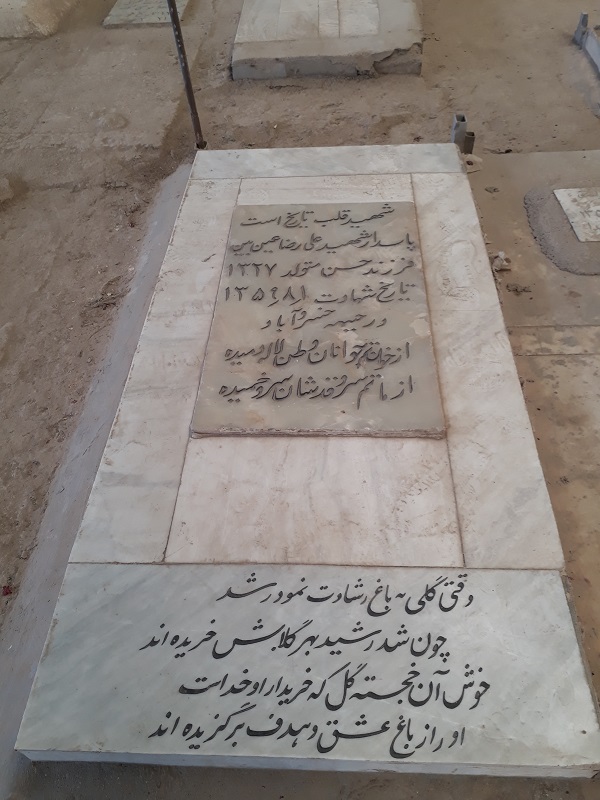 شهید قلب تاریخ است
پاسدار شهید علی رضا عین بین
فرزند حسن متولد ۱۳۳۷
تاریخ شهادت ۱۳۵۹٫۸٫۱
در جبهه خسروآباد
از خون جوانان وطن لاله دمیده
از ماتم سرو قدشان سرو خمیده
وقتی گلی به باغ رشادت نمود رشد
چون شد رشید بهر گلابش خریده اند
خوش آن خجسته گل که خریدار او خداست
او را ز باغ عشق و هدف برگزیده اند